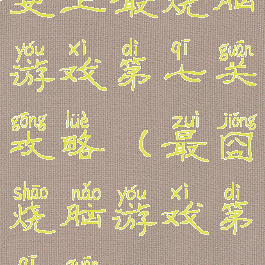 史上最烧脑
yóu xì dì qī guān
游戏第七关
gōng lüè zuì jiǒng
攻略（最囧
shāo nǎo yóu xì dì
烧脑游戏第
qī guān